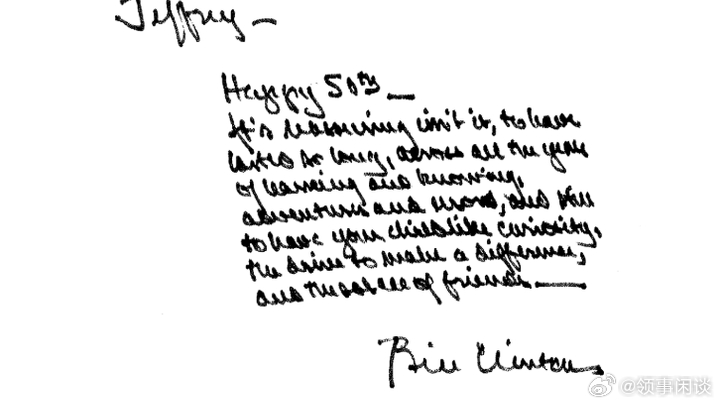 Jeffrey —
Happy 50th —
It's reassuring isn't it, to have
lasted so long, across all the years
of learning and knowing,
adventures and and still
to have your childlike curiosity,
the drive to make a difference,
and the solace of friends —
Bill Clinton
@领事闲谈